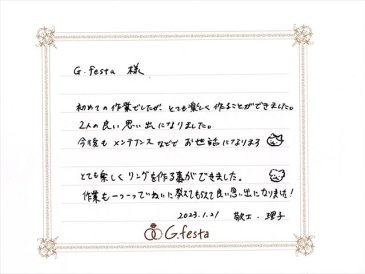 G.festa 様
初めての作業でしたが、とても楽しく作ることができました。
2人の良い思い出になりました。
今後も メンテナンス などで お世話になります
とても楽しくリングを作る事ができました。
作業も一つ一つていねいに教えてもらえて良い思い出になりました!
2023.1.21 敬士・理子
G.festa